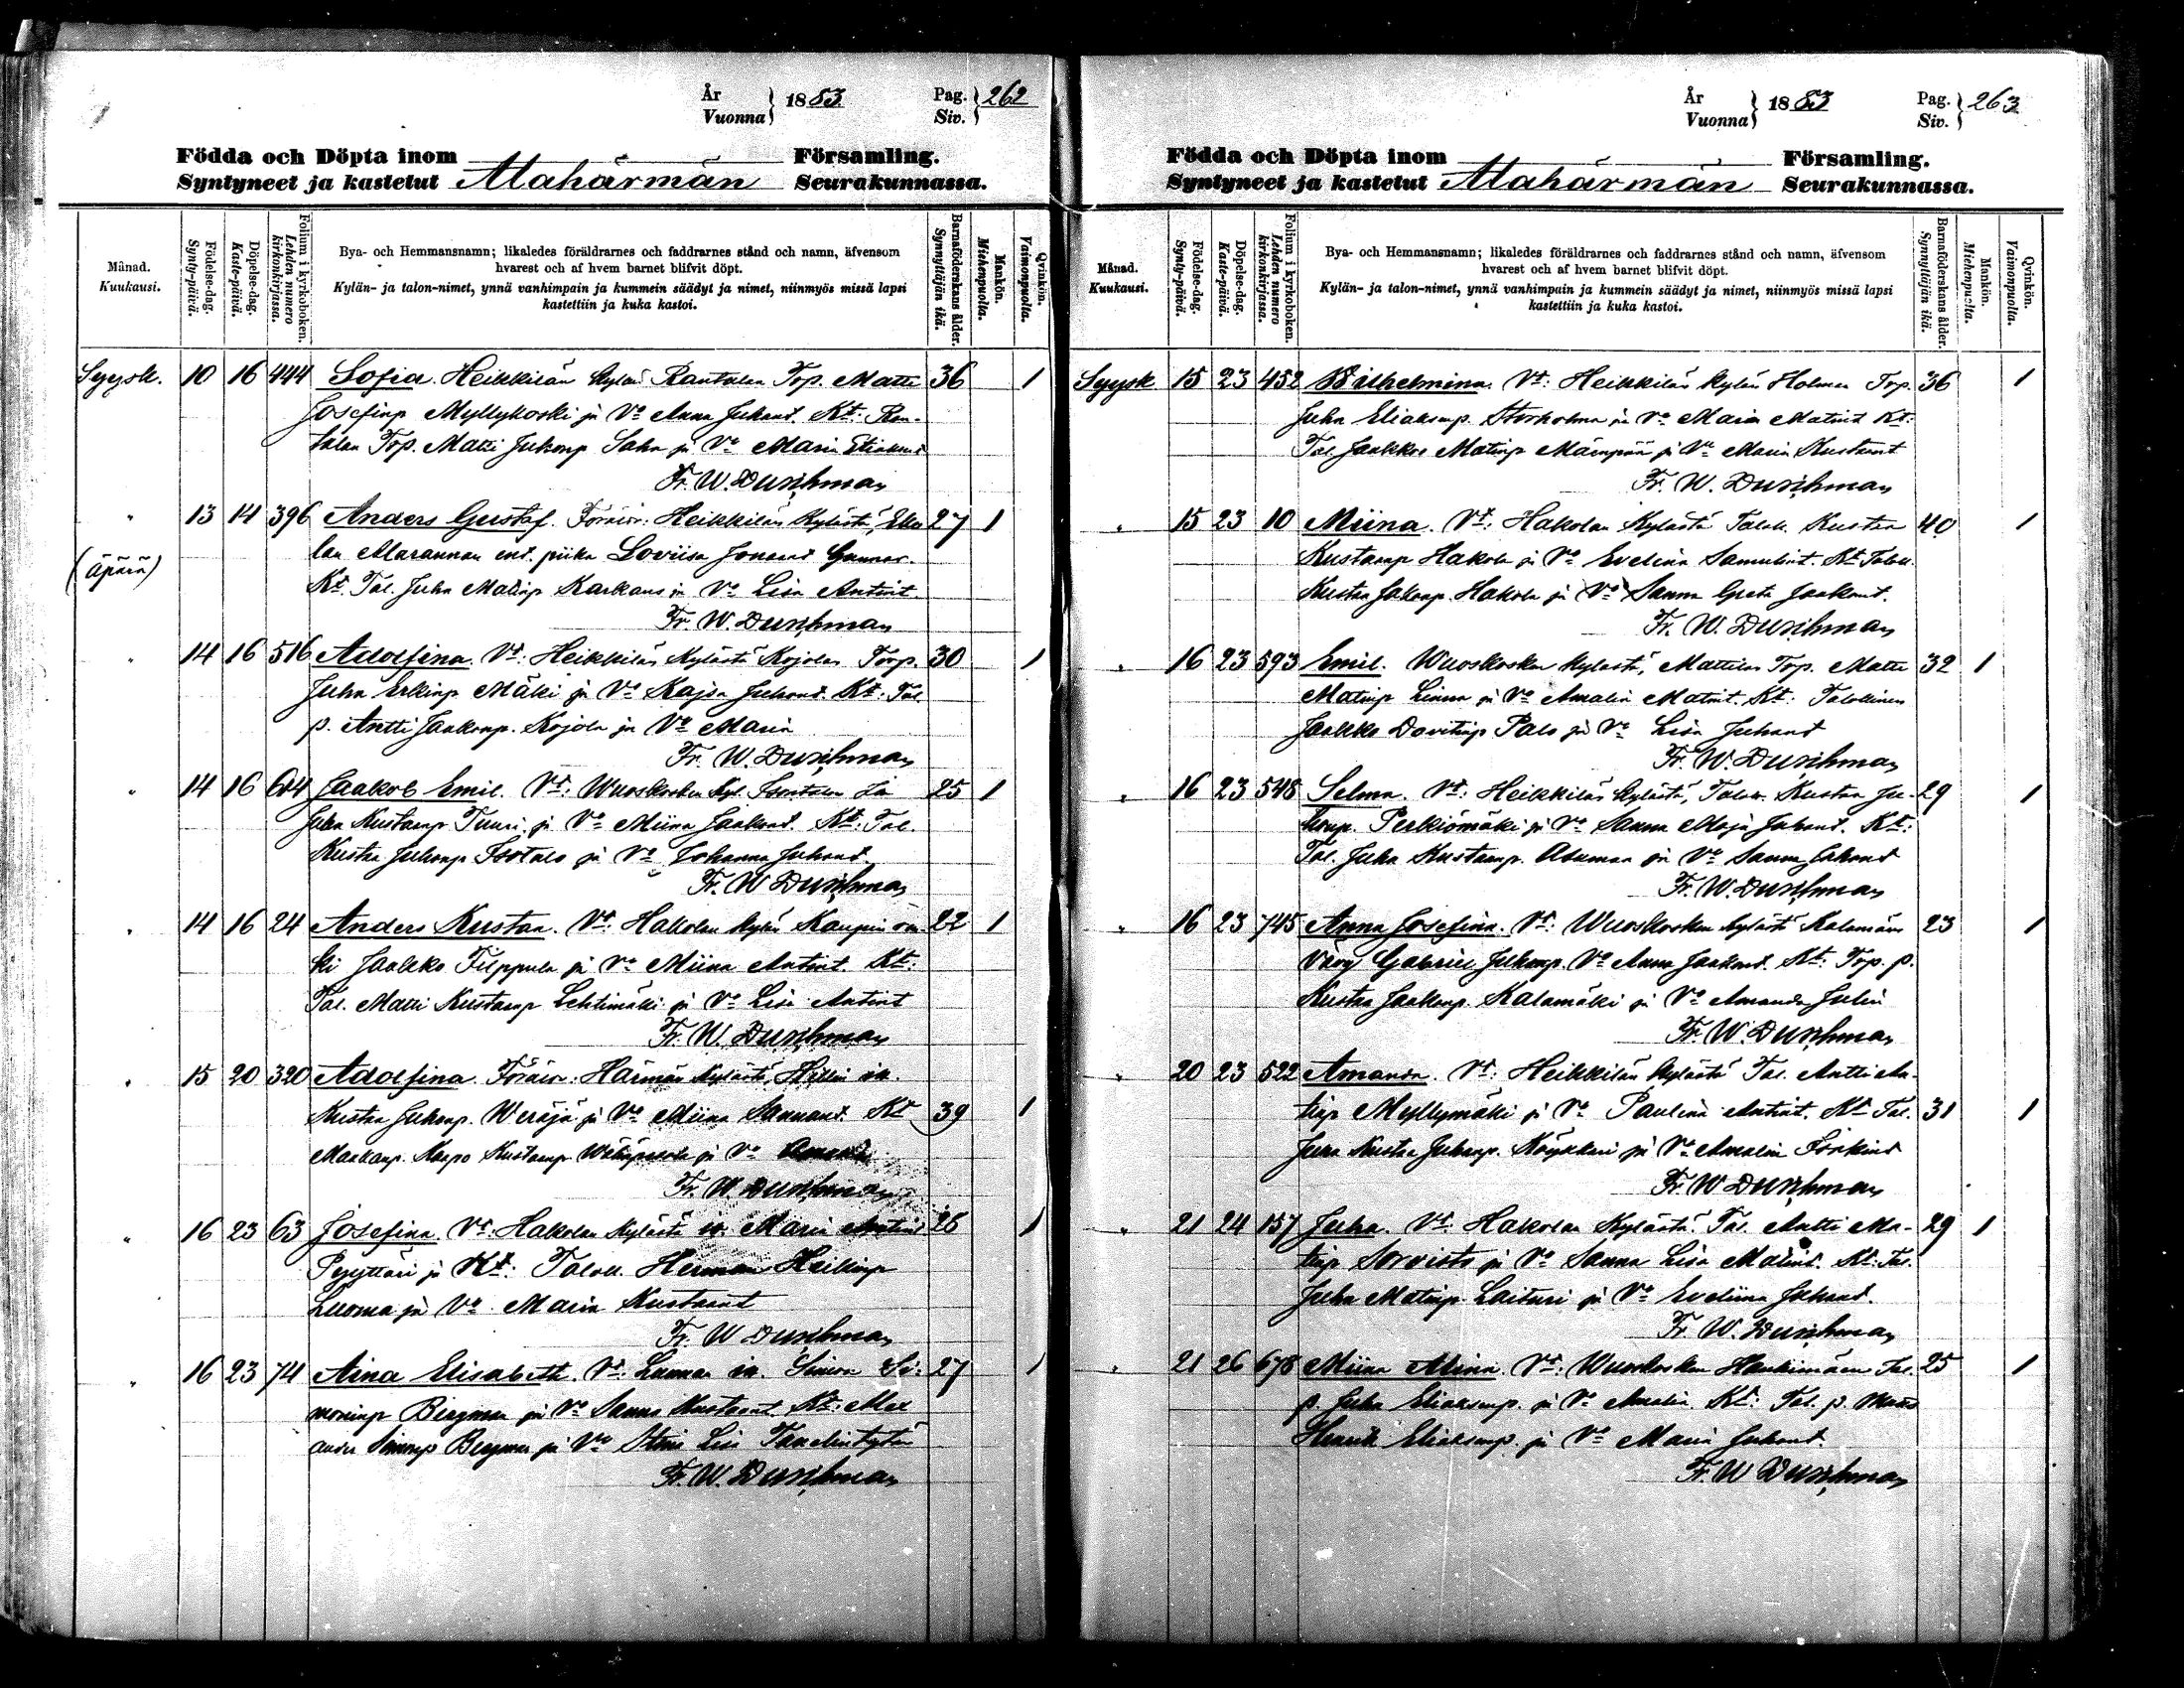 År
Vuonna } 1883 Pag.
Siv. } 262
Födda och Döpta inom Församling.
Syntyneet ja kastetut Alahärmän Seurakunnassa.
Månad.
Kuukausi.
Födelse-dag.
Synty-päivä.
Döpelse-dag.
Kaste-päivä.
Folium i kyrkoboken.
Lehden numero
kirkonkirjassa.
Bya- och Hemmansnamn; likaledes föräldrarnes och faddrarnes stånd och namn, äfvensom
hvarest och af hvem barnet blifvit döpt.
Kylän- ja talon-nimet, ynnä vanhimpain ja kummein säädyt ja nimet, niinmyös missä lapsi
kastettiin ja kuka kastoi.
Barnaföderskans ålder.
Synnyttäjän ikä.
Mankön.
Miehenpuolta.
Qvinkön.
Vaimonpuolta.
Syysk. 10 16 444 Sofia. Heikkilän kylän Rantalan Top. Matti 36 1
Josefinp Myllykoski ja Vo Anna Juhant. Kt: Ran-
talan Top. Matti Juhonp Saha ja Vo Maria
Fr. W. Durchman
" 13 14 396 Anders Gustaf. Heikkilän kylästä, 27 1
(äpärä) piika Loviisa
Kt. Tal. Juha Matinp Karhaus ja Vo Lisa Antint
Fr. W. Durchman
" 14 16 516 Adolfina. Vt: Heikkilän kylästä Kojolan Torp. 30 1
Juha Erkinp Mäki ja Vo Kajsa Juhant. Kt: Tal.
p. Antti Jaakonp. Kojola ja Vo Maria
Fr. W. Durchman
" 14 16 604 Jaakob Emil. Vt: Wuoskosken kyl. Isontalon 25 1
Juha Kustanp Tuuri ja Vo Miina Jaakont. Kt: Tal.
Kustaa Juhonp Isotalo ja Vo Johanna Juhant.
Fr. W. Durchman
" 14 16 24 Anders Kustaa. Vt: Hakolan kylän Kaupin ren- 22 1
ki Jaakko Filppula ja Vo Miina Antint. Kt:
Tal. Matti Kustanp Lehtimäki ja Vo Lisa Antint
Fr. W. Durchman
" 15 20 320 Adolfina. Härmän kylästä,
Kustaa Juhonp. Weräjä ja Vo Miina Kt 39 1
Kustanp ja Vo Amanda
Fr. W. Durchman
" 16 23 63 Josefina. Vt: Hakolan kylästä Maria Antint 26 1
Pyyttäri ja Kt: Taloll. Herman Heikinp
Luoma ja Vo Maria Kustaant
Fr. W. Durchman
" 16 23 74 Aina Elisabeth. Vt: Simon Si- 27 1
moninp Bergman ja Vo Sanna Kustaant. Kt: Alex
ander Simonp Bergman ja Vo Stina Lisa
Fr. W. Durchman
År
Vuonna } 1883 Pag.
Siv. } 263
Födda och Döpta inom Församling.
Syntyneet ja kastetut Alahärmän Seurakunnassa.
Månad.
Kuukausi.
Födelse-dag.
Synty-päivä.
Döpelse-dag.
Kaste-päivä.
Folium i kyrkoboken.
Lehden numero
kirkonkirjassa.
Bya- och Hemmansnamn; likaledes föräldrarnes och faddrarnes stånd och namn, äfvensom
hvarest och af hvem barnet blifvit döpt.
Kylän- ja talon-nimet, ynnä vanhimpain ja kummein säädyt ja nimet, niinmyös missä lapsi
kastettiin ja kuka kastoi.
Barnaföderskans ålder.
Synnyttäjän ikä.
Mankön.
Miehenpuolta.
Qvinkön.
Vaimonpuolta.
Syysk 15 23 452 Wilhelmina. Vt: Heikkilän kylän Holman Top. 36 1
Juha Eliaksenp. Storholma ja Vo Maria Matint Kt:
Tal. Jaakko Matinp Mäenpää ja Vo Maria Kustaant
Fr. W. Durchman
" 15 23 10 Miina. Vt: Hakolan Kylästä Taloll. Kustaa 40 1
Kustaanp Hakola ja Vo Evelina Samulint. Kt Taloll.
Kustaa Jakonp. Hakola ja Vo Sanna Greta Jaakont.
Fr. W. Durchman
" 16 23 593 Emil. Wuoskosken kylästä, Mattilan Top. Matti 32 1
Matinp Linna ja Vo Amalia Matint. Kt: Talollinen
Jaakko Davitinp Palo ja Vo Lisa Juhant
Fr. W. Durchman
" 16 23 548 Selma. Vt: Heikkilän kylästä, Taloll. Kustaa Ju- 29 1
honp. Perkiömäki ja Vo Sanna Maja Juhant. Kt:
Tal. Juha Kustaanp. Asunmaa ja Vo Sanna Jakont
Fr. W. Durchman
" 16 23 745 Anna Josefina. Vt: Wuoskosken kylästä Kalamäen 23 1
vävy Gabriel Juhonp. Vo Anna Jaakont. Kt: Top. p.
Kustaa Jaakonp. Kalamäki ja Vo Amanda
Fr. W. Durchman
" 20 23 522 Amanda. Vt: Heikkilän kylästä Tal. Antti An-
tinp Myllymäki ja Vo Paulina Antint. Kt Tal. 31 1
Juha Kustaa Juhonp. Köykkäri ja Vo Amalia
Fr. W. Durchman
" 21 24 157 Juha. Vt: Hakolan Kylästä. Tal. Antti Ma- 29 1
tinp Sorvisto ja Vo Sanna Lisa Matint. Kt: Tal.
Juha Matinp. Laituri ja Vo Eveliina Juhant.
Fr. W. Durchman
" 21 26 678 Miina Alina. Vt: Wuoskosken Tal. 25 1
p. Juha Eliaksenp. ja Vo Amalia. Kt: Tal. p. Matts
Henrik Eliaksenp. ja Vo Maria Juhant.
Fr. W. Durchman